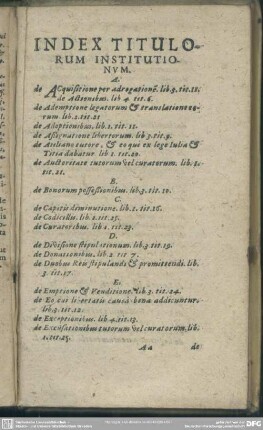 INDEX TITULO-
RUM INSTITUTIO-
NVM.
A.
de ACquisitione per adrogationē. lib. 3. tit. 11.
de Actionibus. lib 4. tit. 6.
de Ademptione legatorum & translatione eo-
rum. lib. 2. tit. 21
de Adoptionibus. lib. 1. tit. 11.
de Assignatione libertorum. lib 3. tit. 9.
de Atiliano tutore, & eo qui ex lege Iulia &
Titia dabatur. lib 1. tit. 20.
de Auctoritate tutorum vel curatorum. lib. 1.
tit. 21.
B.
de Bonorum possessionibus. lib. 3. tit. 10.
C.
de Capitis diminutione. lib. 1. tit. 16.
de Codicillis. lib. 2. tit. 25.
de Curatoribus. lib 1. tit. 23.
D.
de Divisione stipulationum. lib. 3. tit. 19.
de Donationibus. lib 2. tit 7.
de Duobus Reis stipulandi & promittendi. lib.
3. tit. 17.
E.
de Emptione & Venditione. lib. 3. tit. 24.
de Eo cui libertatis causa bona addicuntur.
lib. 3. tit. 12.
de Exceptionibus. lib. 4. tit. 13.
de Excusationibus tutorum vel curatorum. lib.
1. tit. 25.
Aa de
DFG